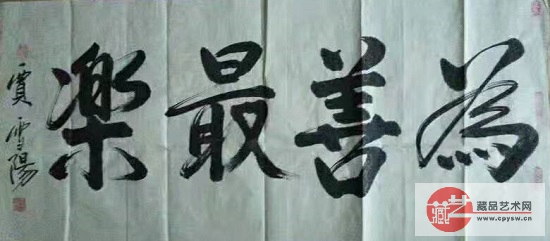 為善最樂
賈雪陽
藏艺
藏品艺术网
www.cpysw.cn